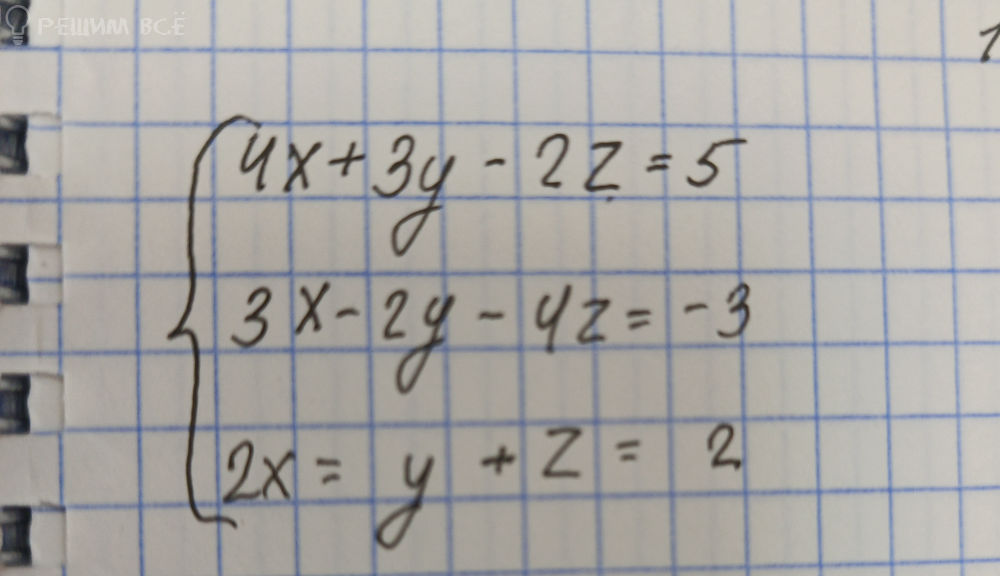 РЕШИМ ВСЁ
1
4x+3y-2z=5
3x-2y-4z=-3
2x=y+z=2